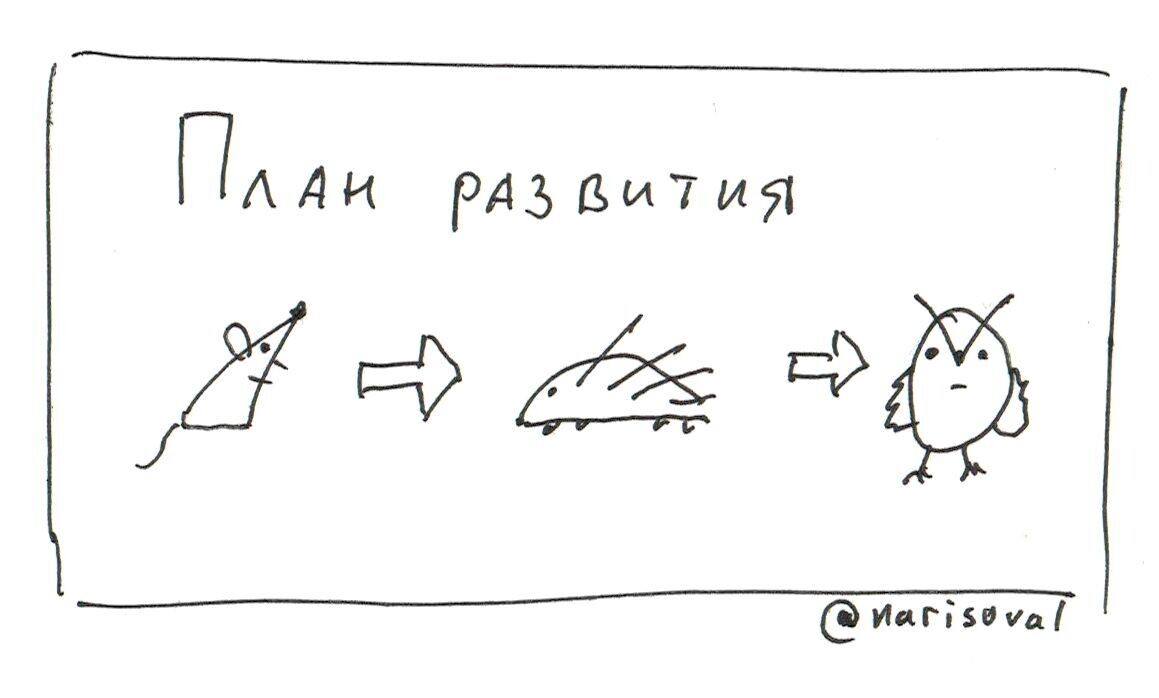 План развития
@narisoval